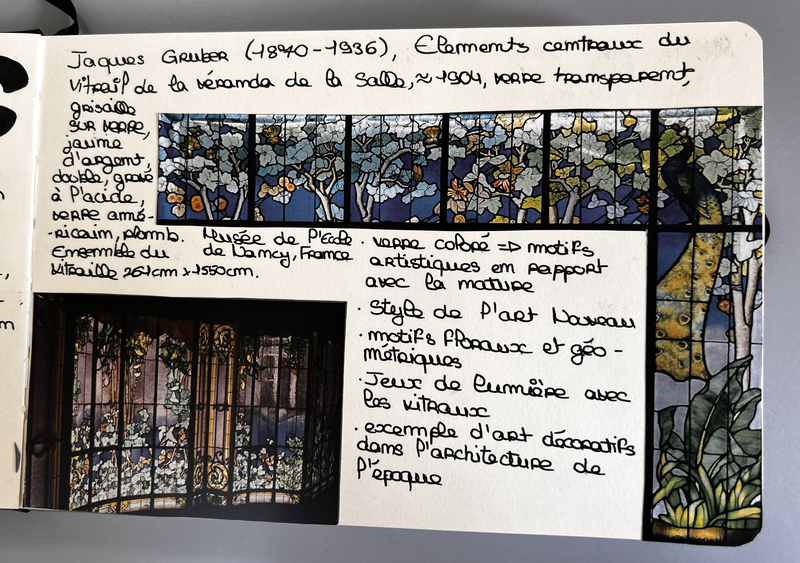 Jaques Gruber (1870-1936), Elements centraux du
vitrail de la véranda de la Salle, ≈ 1904, verre transparent,
grisaille
sur verre,
jaune
d'argent,
double, gravé
à l'acide,
verre amé-
-ricain, plomb.
Ensemble du
vitraille 261cm x 1550cm.
Musée de l'Ecole
de Nancy, France
· verre coloré => motifs
artistiques en rapport
avec la nature
· Style de l'art Nouveau
· motifs floraux et géo-
métriques
· Jeux de lumière avec
les vitraux
· exemple d'art décoratifs
dans l'architecture de
l'époque
m